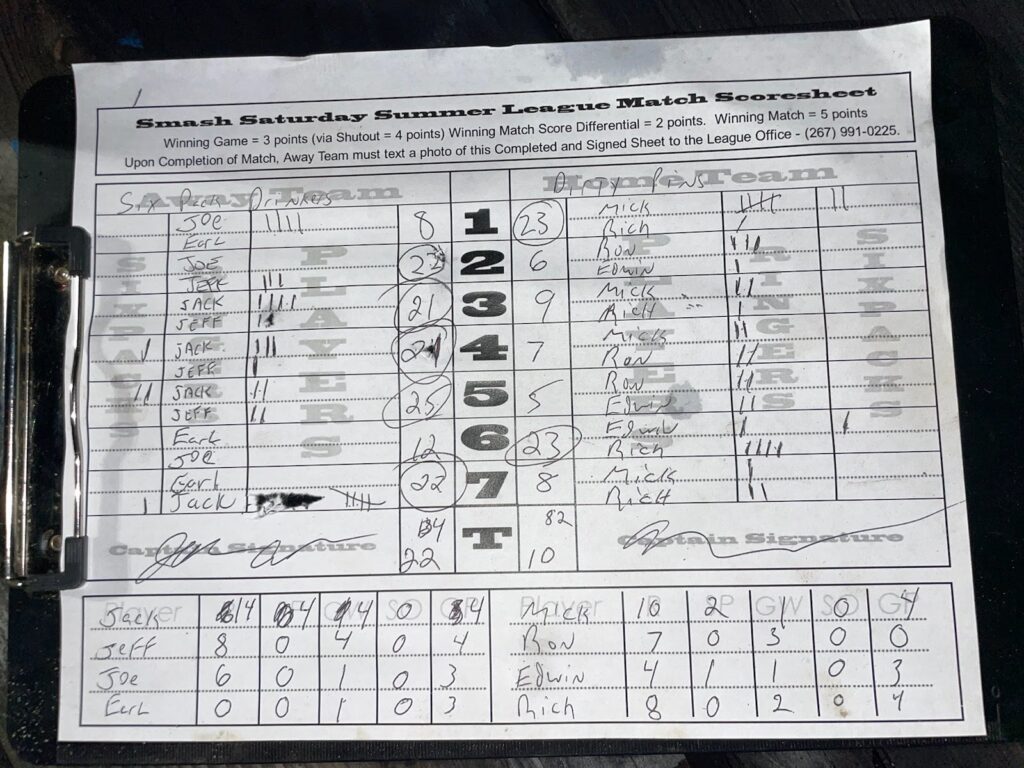 Smash Saturday Summer League Match Scoresheet
Winning Game = 3 points (via Shutout = 4 points) Winning Match Score Differential = 2 points. Winning Match = 5 points
Upon Completion of Match, Away Team must text a photo of this Completed and Signed Sheet to the League Office - (267) 991-0225.
Away Team Home Team
Six Pack Drinkers Dirty Pins
SIXPACKS PLAYERS PLAYERS RINGERS SIXPACKS
JOE 8 1 23 Mick
Earl Rich
JOE 22 2 6 Ron
JEFF Edwin
JACK 21 3 9 Mick
JEFF Rich
JACK 4 7 Mick
JEFF Ron
JACK 25 5 5 Ron
JEFF Edwin
Earl 12 6 23 Edwin
JOE Rich
Earl 22 7 8 Mick
Jack Rich
T 82
Captain Signature 22 10 Captain Signature
Player SO Player GW SO GP
Jack 14 4 4 0 4 Mick 10 2 1 0 4
JEFF 8 0 4 0 4 Ron 7 0 3 0 0
Joe 6 0 1 0 3 Edwin 4 1 1 0 3
Earl 0 0 1 0 3 Rich 8 0 2 0 4